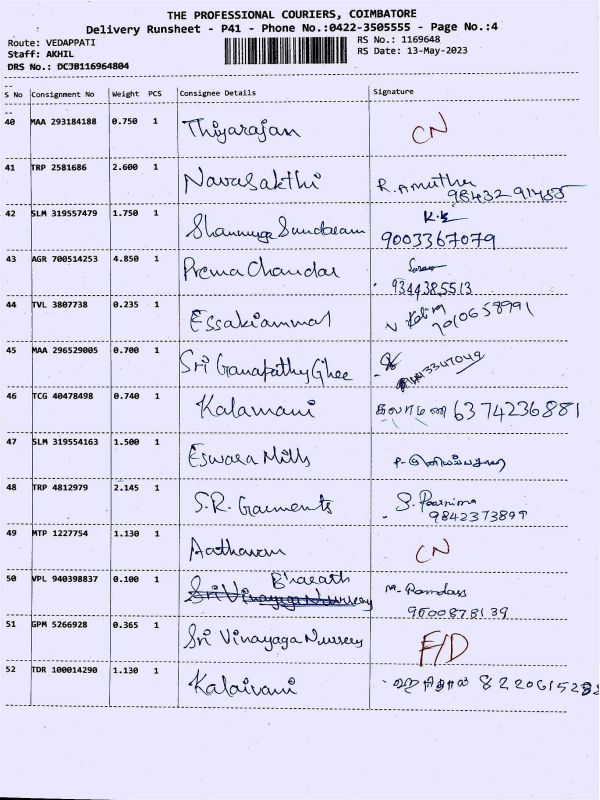 THE PROFESSIONAL COURIERS, COIMBATORE
Delivery Runsheet - P41 - Phone No.:0422-3505555 - Page No.:4
Route: VEDAPPATI
RS No.: 1169648
Staff: AKHIL
RS Date: 13-May-2023
DRS No.: DCJB116964804
S No Consignment No Weight PCS Consignee Details Signature
40 MAA 293184188 0.750 1 Thiyarajan CN
41 TRP 2581686 2.600 1 Navasakthi R. Amutha
42 SLM 319557479 1.750 1 Shanmuga Sundaram
9003367079
43 AGR 700514253 4.850 1 Prema Chandar
9344385513
44 TVL 3807738 0.235 1 Essakiammal
7010658991
45 MAA 296529005 0.700 1 Sri Ganapathy Ghee
46 TCG 40478498 0.740 1 Kalamani 6374236881
47 SLM 319554163 1.500 1 Eswara Mills
48 TRP 4812979 2.145 1 S.R. Garments S. Poornima
49 MTP 1227754 1.130 1 Aatharam CN
50 VPL 940398837 0.100 1 Bharath M. Ramdass
Sri Vinayaga Nursery
9600878139
51 GPM 5266928 0.365 1 Sri Vinayaga Nursery F/D
52 TDR 100014290 1.130 1 Kalaivani